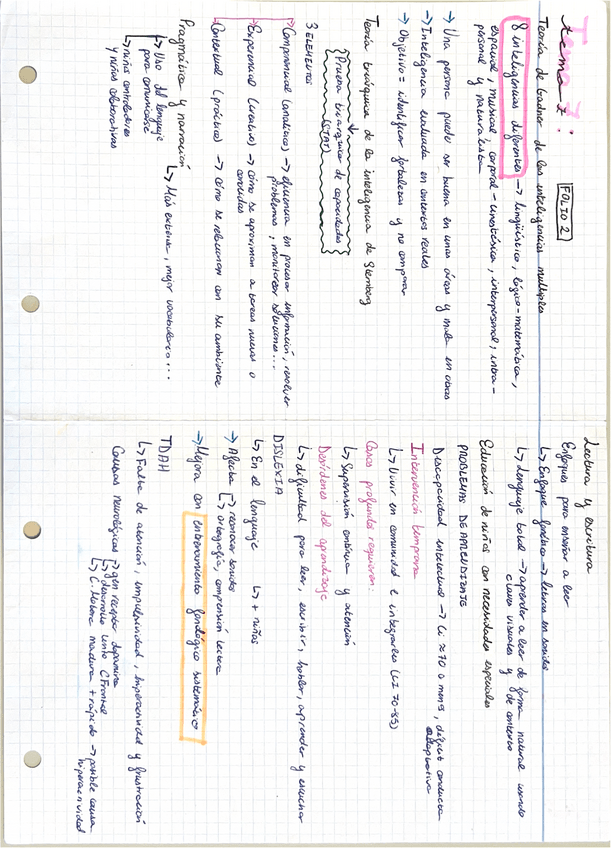 Tema 7:
FOLIO 2
Teoría de Gadner de las inteligencias multiples
8 inteligencias diferentes → lingüístico, lógico-matemática,
espacial, musical, corporal-cinestésica, interpersonal, intra-
personal y naturalista
→ Una persona puede ser buena en unas áreas y mala en otras
→ Inteligencia evaluada en contextos reales
→ Objetivo = identificar fortalezas y no comparar
Teoría triárquica de la inteligencia de Sternberg
Prueba triarquica de capacidades
(STAT)
3 ELEMENTOS
Componencial (analítico) → eficiencia en procesar información, resolver
problemas, monitorear soluciones...
Experiencial (creativo) → cómo se aproximan a tareas nuevas o
conocidas
Contextual (práctico) → cómo se relacionan con su ambiente
Pragmática y narración
↳ Uso del lenguaje
para comunicarse
↳ Más extensa, mejor vocabulario +...
↳ niños controladores
y niñas colaborativas
Lectura y escritura
Enfoques para enseñar a leer
↳ Enfoque fonético → letras en sonidos
↳ Lenguaje total → aprender a leer de forma natural usando
claves visuales y de contexto
Educación de niños con necesidades especiales
PROBLEMAS DE APRENDIZAJE
Discapacidad intelectual → Ci ≈ 70 o menos, déficit conducta
adaptativa
Intervención temprana
↳ Vivir en comunidad e integrarlos (CI 70-85)
Casos profundos requieren:
↳ Supervisión continua y atención
Desórdenes del aprendizaje
↳ dificultad para leer, escribir, hablar, aprender y escuchar
DISLEXIA
↳ En el lenguaje ↳ + niños
→ Afecta ↳ reconocer sonidos
↳ ortografía, comprensión lectora
→ Mejora con entrenamiento fonológico sistemático
TDAH
↳ Falta de atención, impulsividad, hiperactividad y frustración
Causas neurológicas → gen receptor dopamina
↳ desarrollo lento C. Frontal
↳ C. Motora madura + rápido → posible causa
hiperactividad